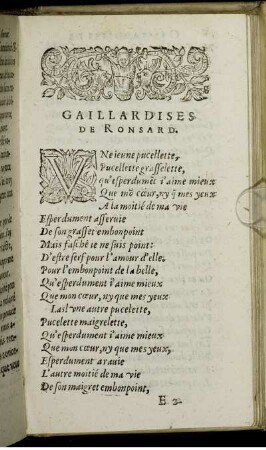 GAILLARDISES
DE RONSARD.
VNe ieune pucellette,
Pucellette grasselette,
qu'esperdumēt i'aime mieux
Que mō cœur, ny q̃ mes yeux
A la moitié de ma vie
Esperdument asseruie
De son grasset embonpoint
Mais fasché ie ne suis point
D'estre serf pour l'amour d'elle,
Pour l'embonpoint de la belle,
Qu'esperdument i'aime mieux
Que mon cœur, ny que mes yeux
Las! vne autre pucelette,
Pucelette maigrelette,
Qu'esperdument i'aime mieux
Que mon cœur, ny que mes yeux,
Esperdument a rauie
L'autre moitié de ma vie
De son maigret embonpoint,
E 2